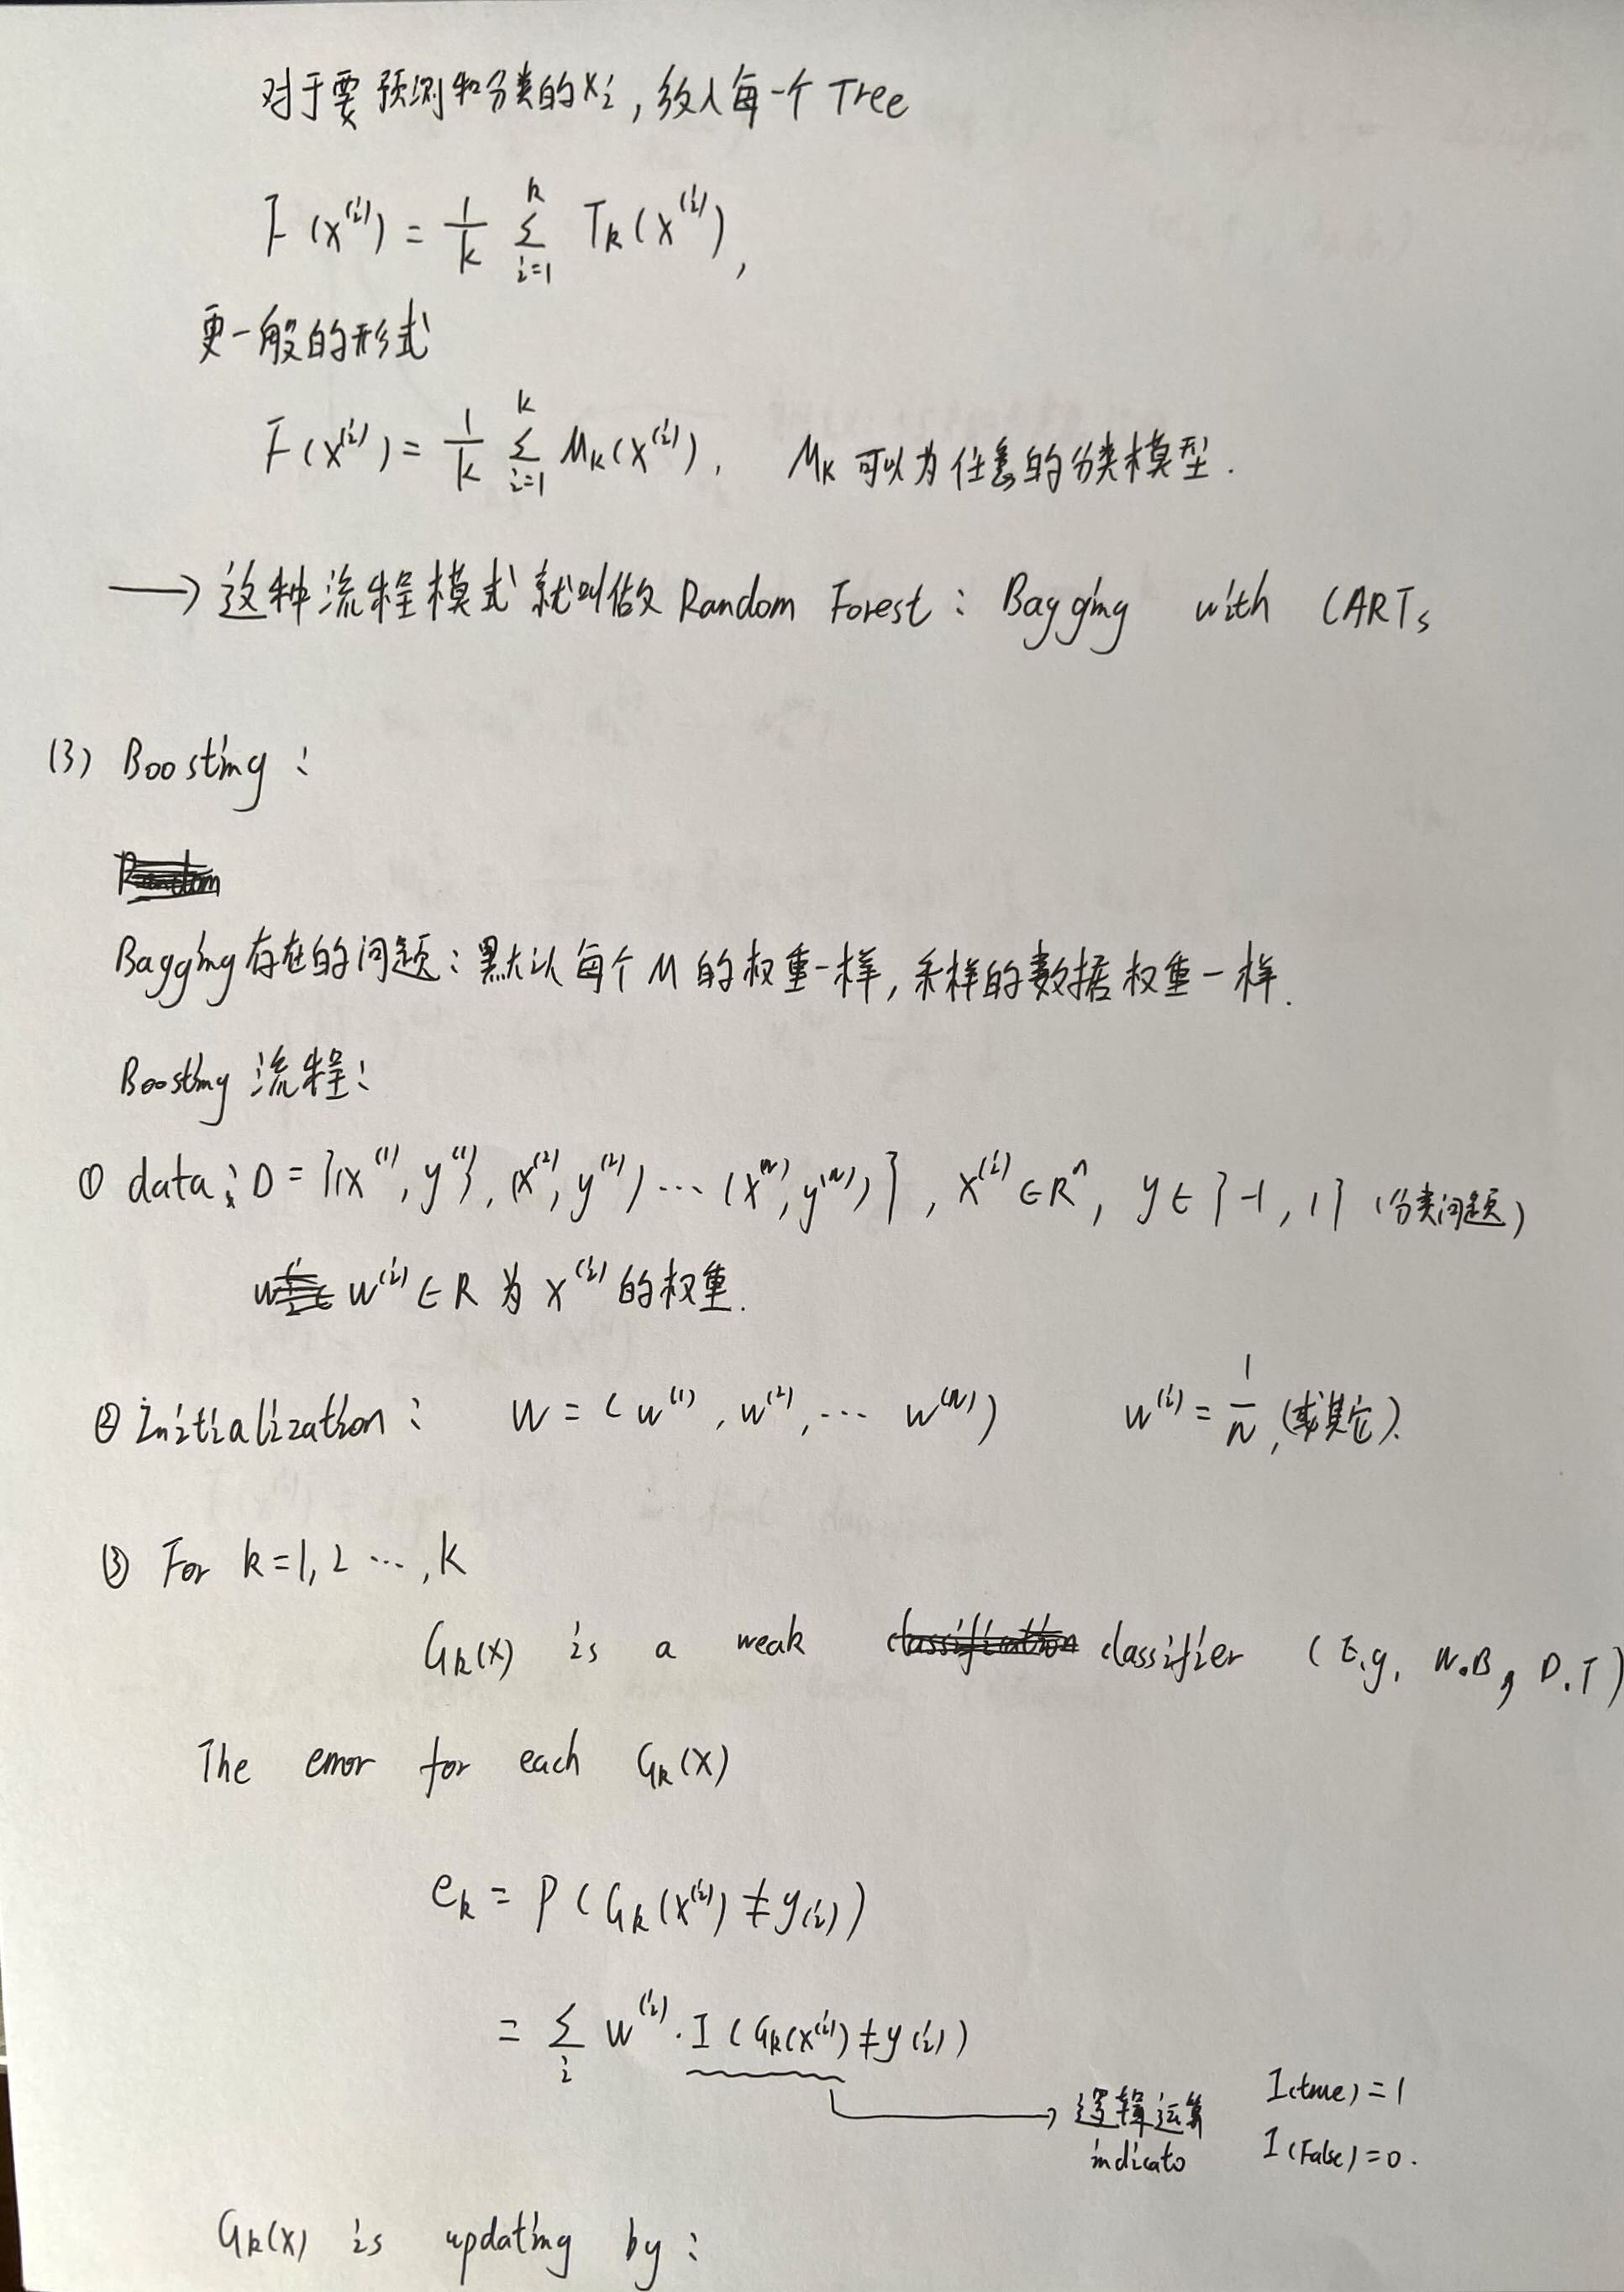 对于要预测和分类的xi,放入每一个Tree
F(x^(i)) = 1/k Σ_{i=1}^{k} T_k(x^(i)),
更一般的形式
F(x^(i)) = 1/k Σ_{i=1}^{k} M_k(x^(i)), M_k 可以为任意的分类模型.
→ 这种流程模式就叫做 Random Forest: Bagging with CARTs
(3) Boosting:
Bagging存在的问题:默认每个M的权重一样,采样的数据权重一样.
Boosting 流程:
① data: D = {(x^(1), y^(1)), (x^(2), y^(2)) ··· (x^(N), y^(N))}, x^(i) ∈ R^n, y ∈ {-1, 1} (分类问题)
w^(i) ∈ R 为 x^(i) 的权重.
② Initialization: W = (w^(1), w^(2), ··· w^(N)) w^(i) = 1/N, (或其它).
③ For k=1, 2 ···, K
G_k(x) is a weak classifier (E.g. N.B, D.T)
The error for each G_k(x)
e_k = P(G_k(x^(i)) ≠ y(i))
= Σ_i w^(i) · I(G_k(x^(i)) ≠ y(i))
→ 逻辑运算 I(true) = 1
indicato I(False) = 0.
G_k(x) is updating by: